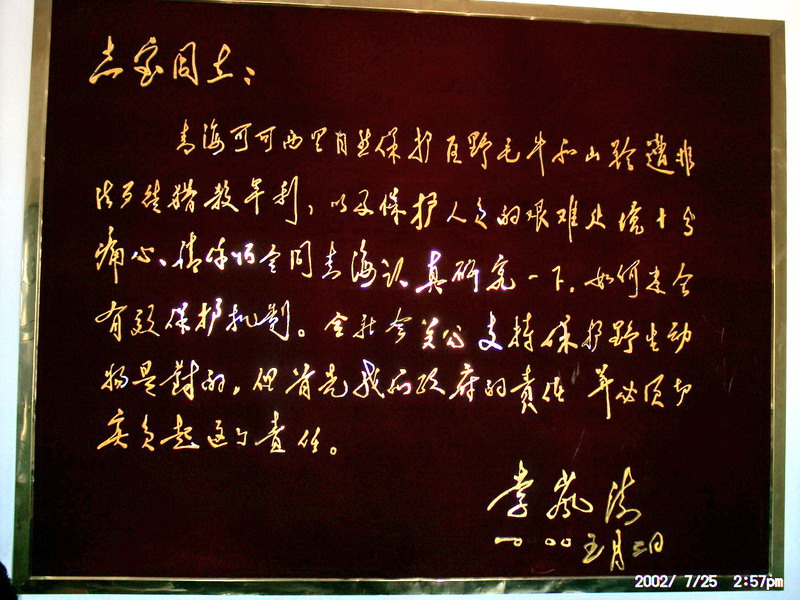 志宝同志：
青海可可西里自然保护区野毛牛和山羚遭非
法歹徒猎杀牟利，以及保护人员的艰难处境十分
痛心、请你们会同青海认真研究一下，如何建全
有效保护机制。全社会关心支持保护野生动
物是对的，但首先我们政府的责任 并必须切
实负起这个责任。
李岚清
二〇〇〇 五月二日
2002/ 7/25 2:57pm